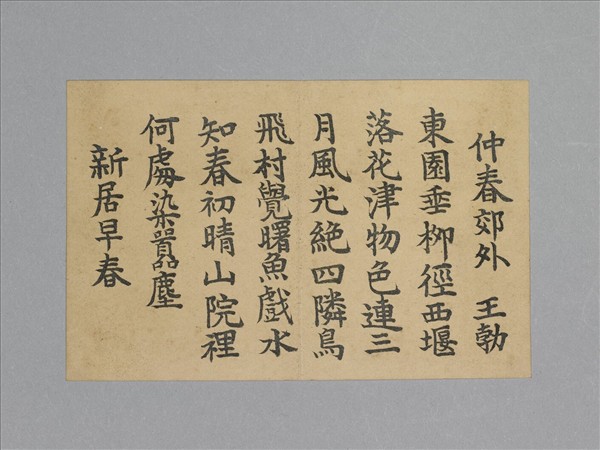 仲春郊外 王勃
東園垂柳徑西堰
落花津物色連三
月風光絶四隣鳥
飛村覺曙魚戲水
知春初晴山院裡
何處染嚣塵
新居早春